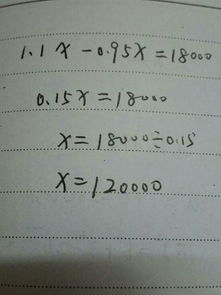 1.1x-0.95x=18000
0.15x=18000
x=18000÷0.15
x=120000